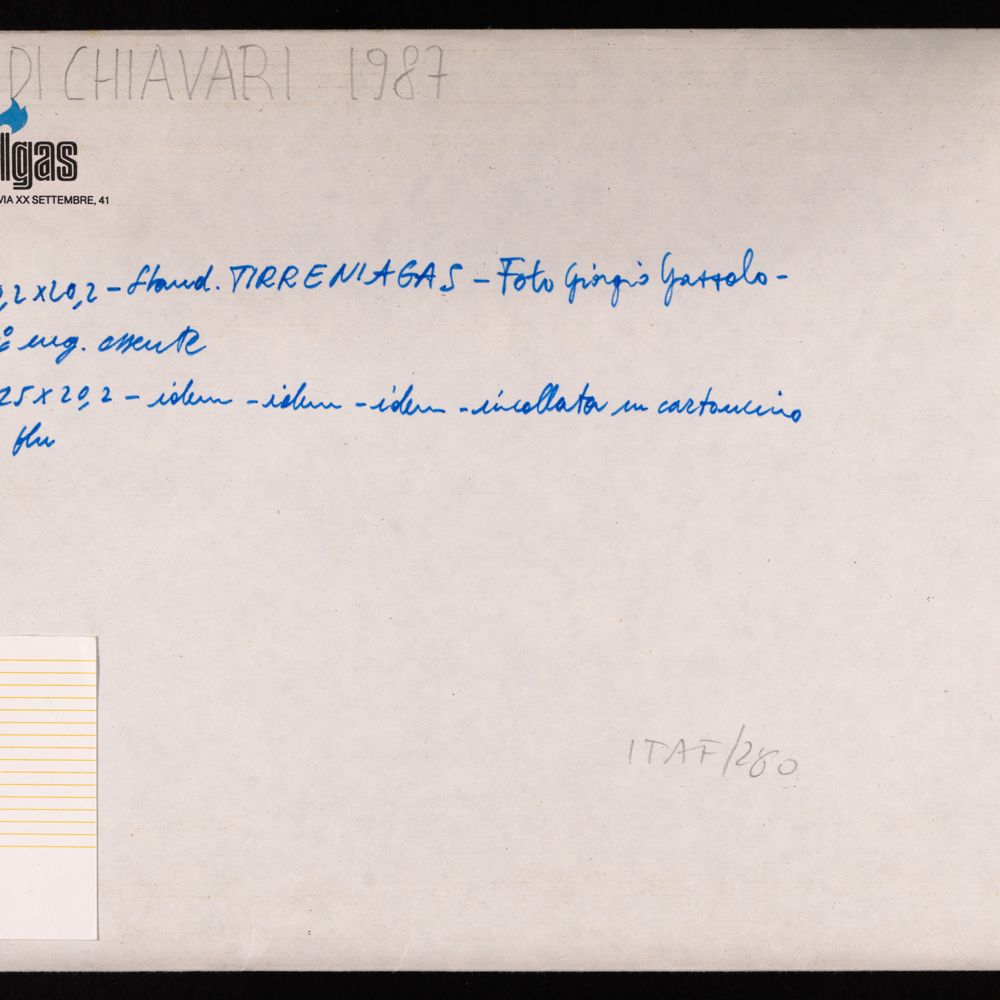 DI CHIAVARI 1987
lgas
VIA XX SETTEMBRE, 41
0,2 x 20,2 - Stand. TIRRENIAGAS - Foto Giorgio Gazzolo -
neg. assente
25 x 20,2 - idem - idem - idem - incollata su cartoncino
blu
ITAF/280